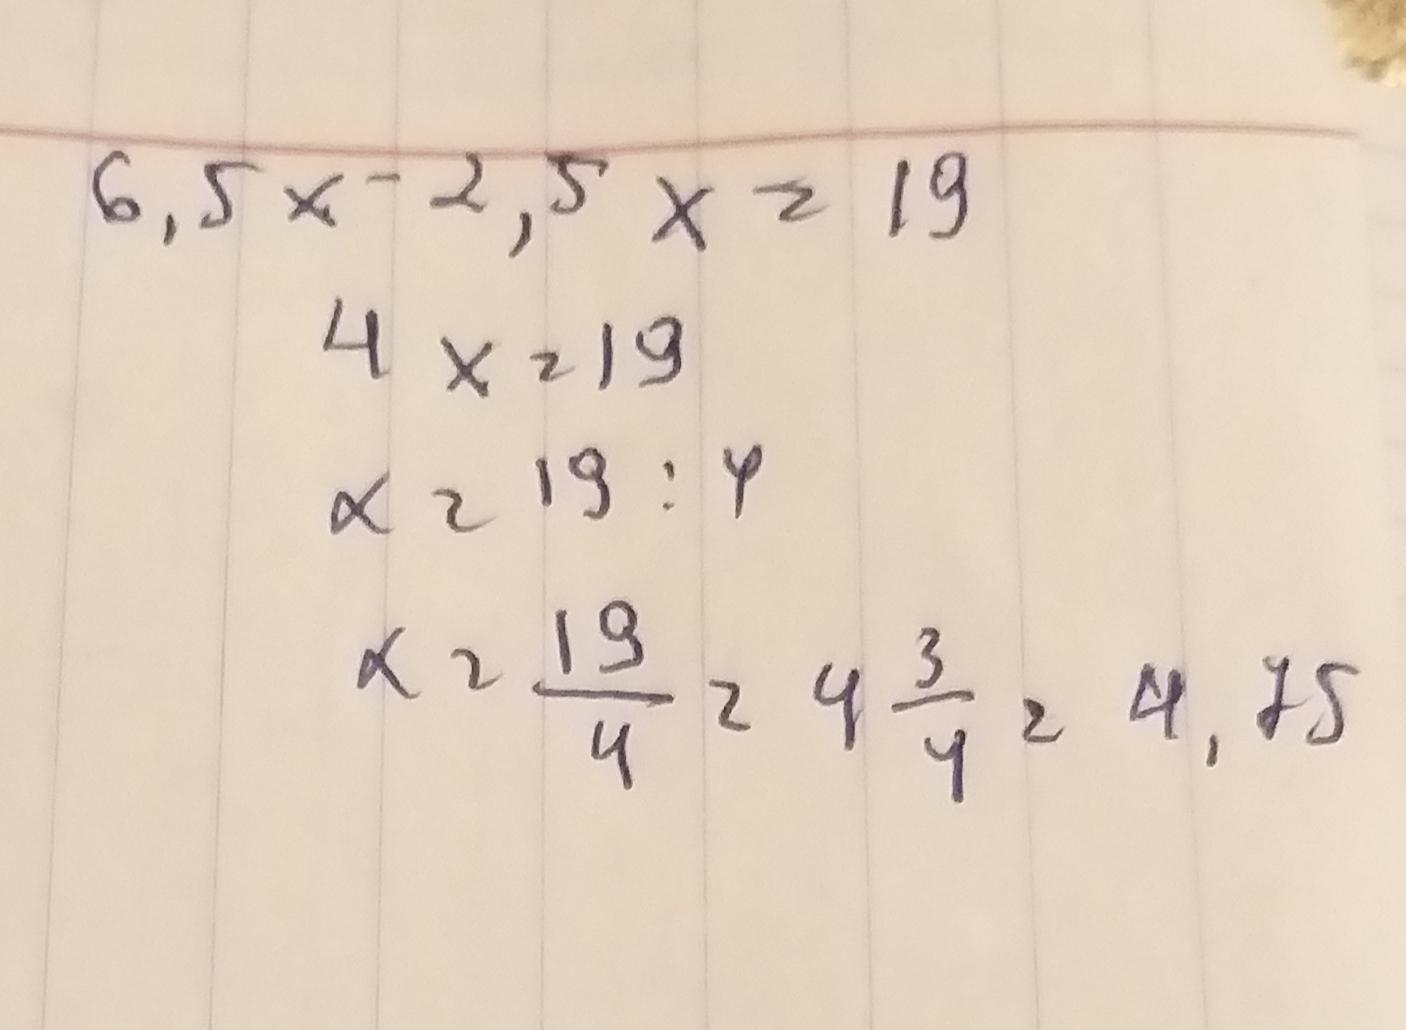 6,5x - 2,5x = 19
4x = 19
x = 19 : 4
x = 19/4 = 4 3/4 = 4,75